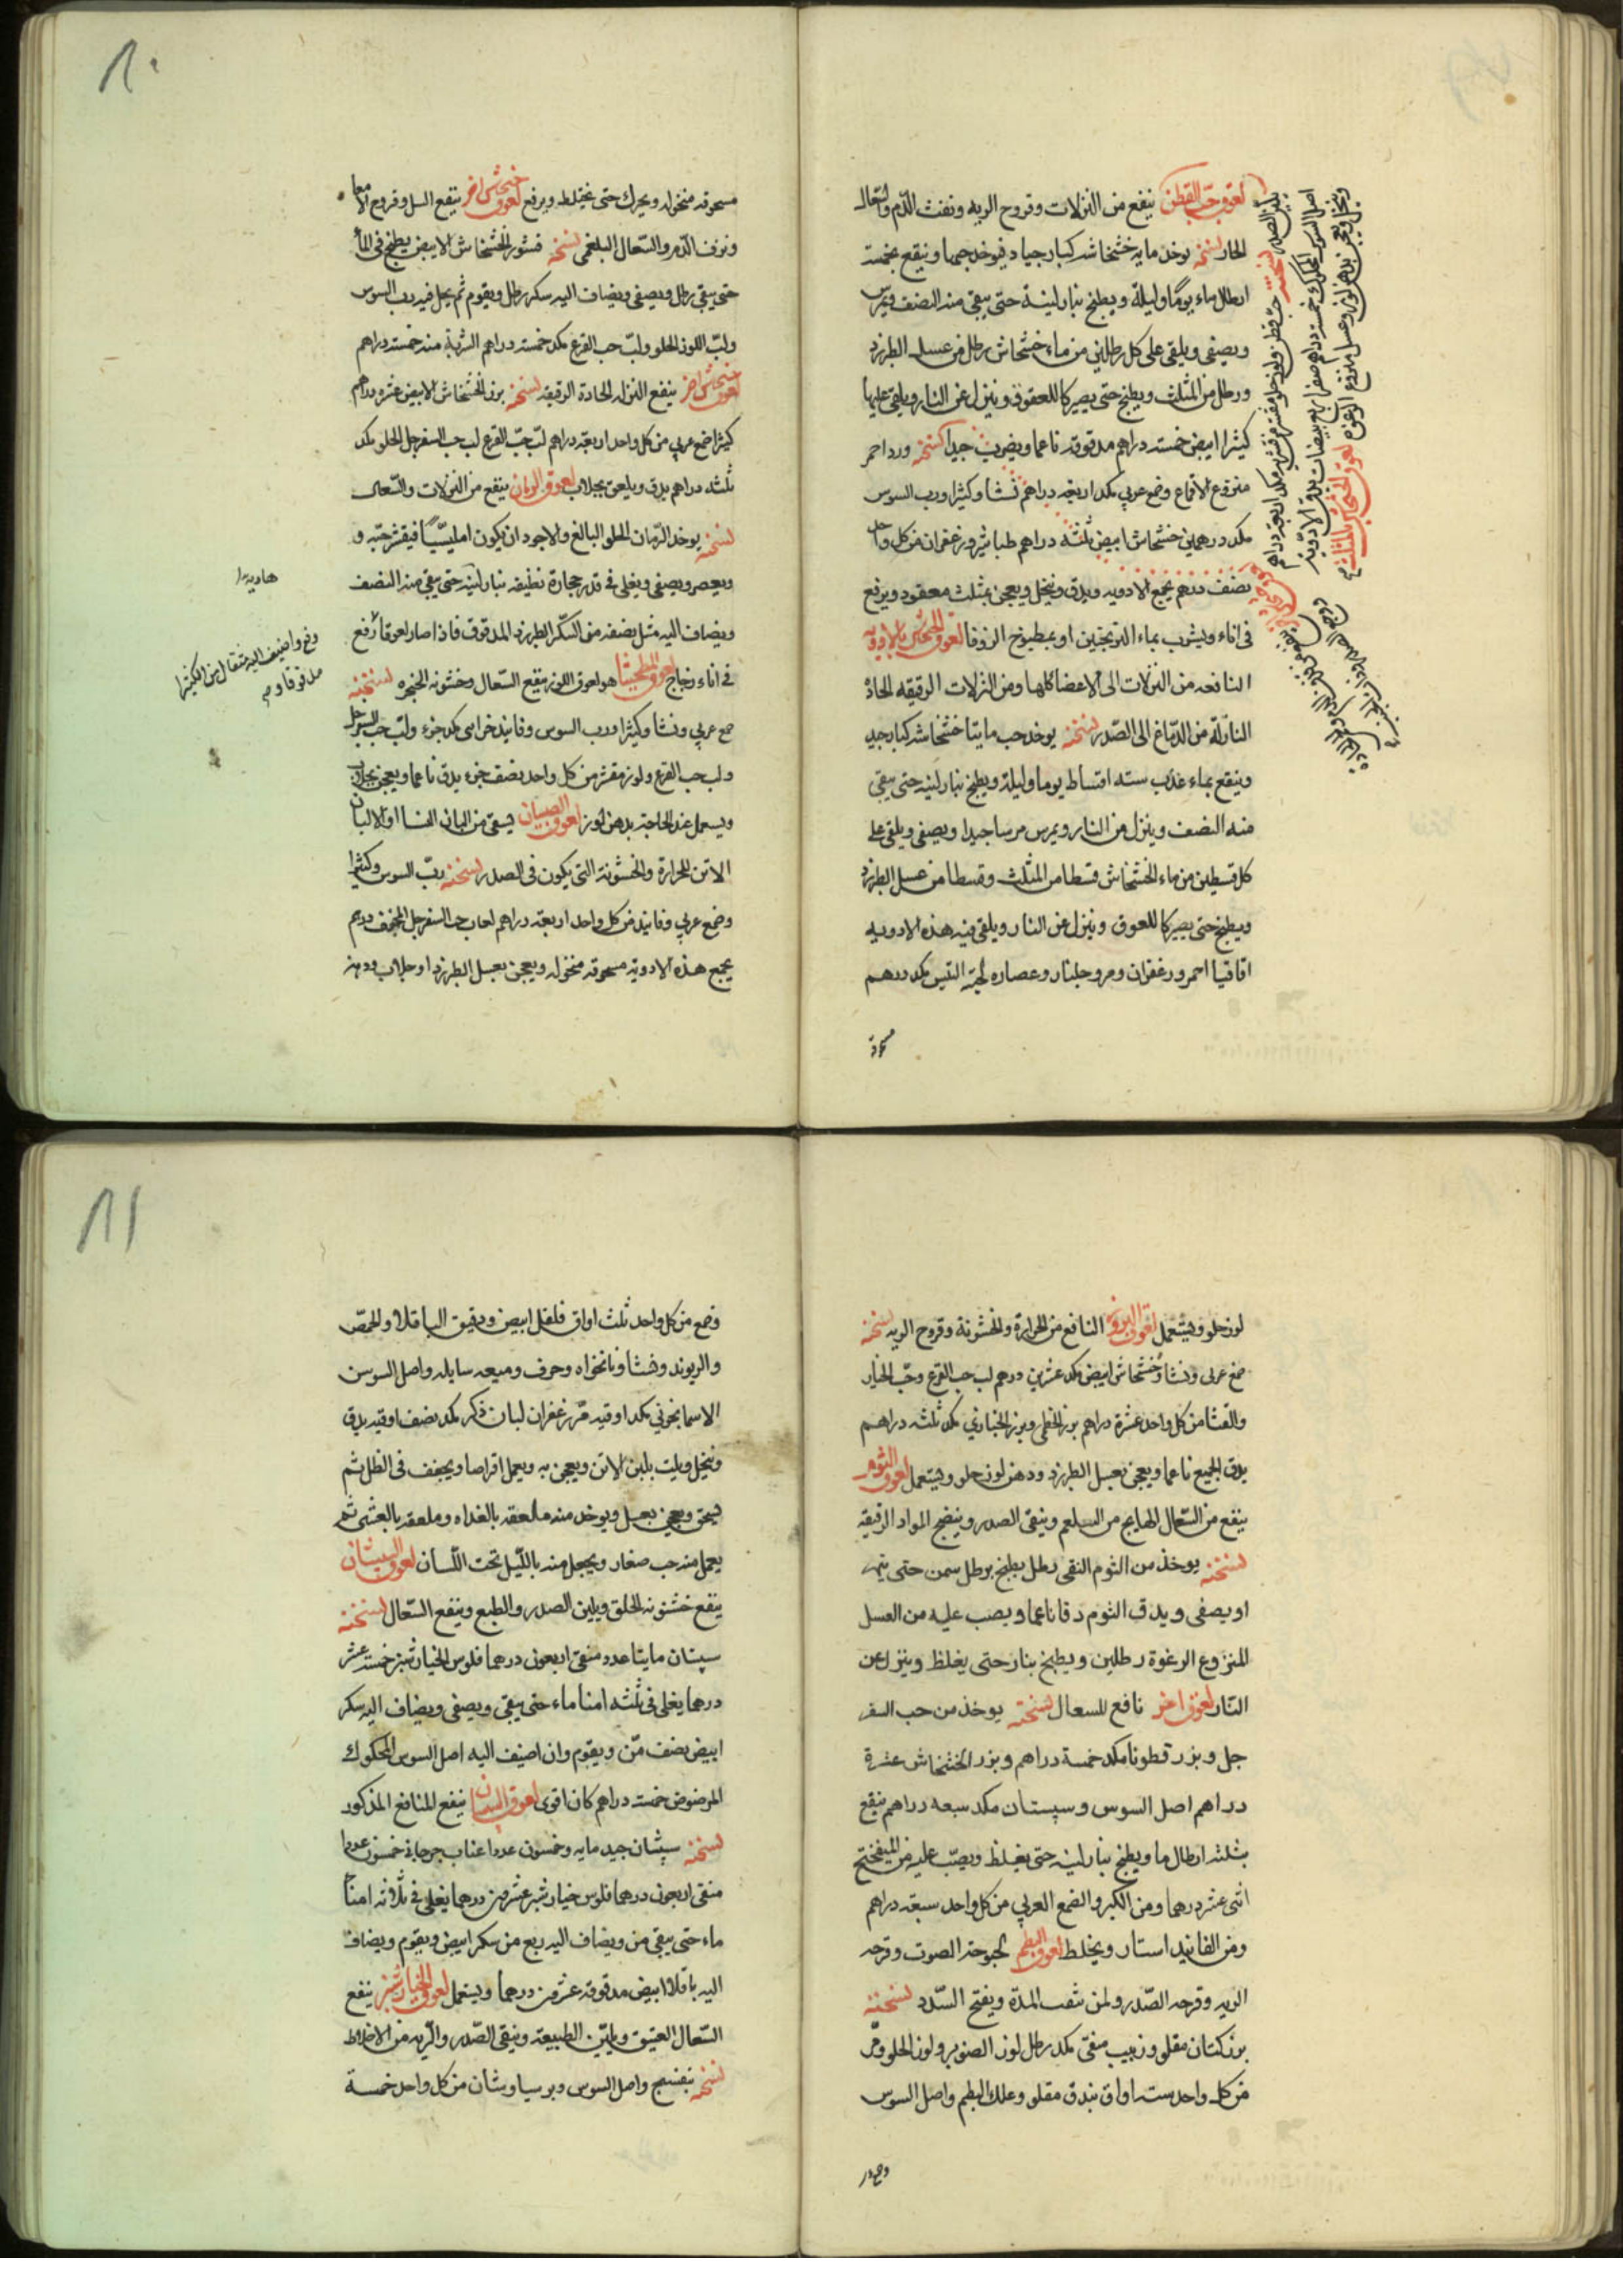 لعوق حب القطن ينفع من النزلات وقروح الريه ونفث الدم والسعال
الحار نسخته يوخذ مايه خشخاشه كبار جياد فيوخذ حبها وينقع بخمسة
ارطال ماء يومًا وليلة ويطبخ بنار لينة حتى يبقى منه النصف ويمرس
ويصفى ويلقى على كل رطلين من ماء خشخاش رطل من عسل الطبرزد
ورطل من المثلث ويطبخ حتى يصير كاللعوق وينزل عن النار ويلقى عليها
كثيرا ابيض خمسة دراهم مدقوقه ناعما ويضرب جيدا نسخته ورد احمر
منزوع الاقماع وصمغ عربي مكد اربعة دراهم نشا وكثيرا ورب السوس
مكد درهمين خشخاش ابيض ثلثه دراهم طباشير وزعفران من كل واحد
نصف درهم يجمع الادويه ويدق وينخل ويعجن بمثلث معقود ويرفع
في اناء ويشرب بماء الترنجبين او بمطبوخ الزوفا لعوق الخشخاش بالادويه
النافعه من النزلات الى الاعضا كلها ومن النزلات الرقيقه الحادة
النازلة من الدماغ الى الصدر نسخته يوخذ حب مايتا خشخاشه كبار جيد
وينقع بماء عذب سته اقساط يوما وليلة ويطبخ بنار لينه حتى يبقى
منه النصف وينزل من النار ويمرس مرسا جيدا ويصفى ويلقى على
كل قسطين من ماء الخشخاش قسطا من المثلث وقسطا من عسل الطبرزد
ويطبخ حتى يصير كاللعوق وينزل عن النار ويلقى فيه هذه الادويه
اقاقيا احمر وزعفران ومر وجلنار وعصاره لحية التيس مكد درهم
مسحوقه
نسخته حب قطن ولوز حلو مقشر من قشريه مكد اربعة دراهم
اصل السوس المحكوك خمسة دراهم صفرا اربع بيضات يدق الادويه
وينخل ويعجن بدهن لوز وعسل منزوع الرغوه لعوق الخشخاش بالمثلث
٨٠
مسحوقه منخوله ويحرك حتى يختلط ويرفع لعوق خشخاش اخر ينفع السل وقروح الامعا
ونزف الدم والسعال البلغمي نسخته قشور الخشخاش الابيض يطبخ في الماء
حتى يبقى رطل ويصفى ويضاف اليه سكر رطل ويقوم ثم يجعل فيه رب السوس
ولب اللوز الحلو ولب حب القرع مكد خمسة دراهم الشربة منه خمسة دراهم
لعوق خشخاش اخر ينفع النزله الحادة الرقيقه نسخته بزر الخشخاش الابيض عشره دراهم
كثيرا صمغ عربي من كل واحد اربعة دراهم لب حب القرع لب حب السفرجل الحلو مكد
ثلثه دراهم يدق ويلعق بجلاب لعوق الرمان ينفع من النزلات والسعال
نسخته يوخذ الرمان الحلو البالغ والاجود ان يكون امليسيًا فيقشر حبه و
ويعصر ويصفى ويغلى في قدر حجارة نظيفه بنار لينه حتى يبقى منه النصف
ويضاف اليه مثل نصفه من السكر الطبرزد المدقوق فاذا صار لعوقا رفع
في اناء زجاج لعوق هو لعوق اللوز ينفع السعال وخشونه الحنجره نسخته
صمغ عربي ونشا وكثيرا ورب السوس وفانيذ خزاىى مكد جزء ولب حب السفرجل
ولب حب القرع ولوز مقشر من كل واحد نصف جزء يدق ناعما ويعجن بجلاب
ويستعمل عند الحاجة بدهن لوز لعوق الصبيان يسقى من البان النسا او الالبان
الاتن للحرارة والخشونة التي يكون في الصدر نسخته رب السوس وكثيرا
وصمغ عربي وفانيذ من كل واحد اربعة دراهم لعاب حب السفرجل المجفف درهم
يجمع هذه الادوية مسحوقه منخوله ويعجن بعسل الطبرزد او جلاب ودهن
وفي اضيف اليه مثقال من الكثيرا
مدقوقا
٨١
لوز حلو ويستعمل لعوق البزور النافع من الحرارة والخشونة وقروح الريه نسخته
صمغ عربي ونشا وخشخاش ابيض مكد عشرين درهم لب حب القرع وحب الخيار
والقثا من كل واحد عشرة دراهم بزر الخطمي وبزر الخبازي مكد ثلثه دراهم
يدق الجميع ناعما ويعجن بعسل الطبرزد ودهن لوز حلو ويستعمل لعوق الثوم
ينفع من السعال الهايج من البلغم وينقى الصدر وينضج المواد الرقيقه
نسخته يوخذ من الثوم النقى رطل يطبخ برطل سمن حتى يتهر
او يصفى ويدق الثوم دقا ناعما ويصب عليه من العسل
المنزوع الرغوة رطلين ويطبخ بنار حتى يغلظ وينزل عن
النار لعوق اخر نافع للسعال نسخته يوخذ من حب السفر
جل وبزر قطونا مكد خمسة دراهم وبزر الخشخاش عشرة
دراهم اصل السوس وسپستان مكد سبعه دراهم ينقع
بثلثه ارطال ما ويطبخ بنار لينه حتى يغلظ ويصب عليه من الميفختج
اثنى عشر درهما ومن الكبر والصمغ العربي من كل واحد سبعة دراهم
ومن الفانيد استار ويخلط لعوق البطم لبحوحة الصوت وقرحه
الريه وقرحه الصدر ولمن نفث المدة ويفتح السدد نسخته
بزر كتان مقلو وزبيب منقى مكد رطل لوز الصنوبر ولوز الحلو ومر
من كل واحد ستة اواق بندق مقلو وعلك البطم واصل السوس
وصمغ من كل واحد ثلث اواق فلفل ابيض ودقيق الباقلا والحمص
والريوند ونشا ونانخواه وحرف وميعه سايله واصل السوسن
الاسمانجوني مكد اوقيه مر زعفران لبان ذكر مكد نصف اوقيه يدق
وينخل ويلت بلبن الاتن ويعجن به ويعمل اقراصا ويجفف في الظل ثم
يسحق ويعجن بعسل ويوخذ منه ملعقه بالغداه وملعقه بالعشى ثم
يعمل منه حب صغار ويجعل منه بالليل تحت اللسان لعوق السپستان
ينفع خشونه الحلق ويلين الصدر والطبع وينفع السعال نسخته
سپستان مايتا عدد منقى اربعون درهما فلوس الخيارشنبر خمسة عشر
درهما يغلى في ثلثه امنا ماء حتى يبقى ويصفى ويضاف اليه سكر
ابيض نصف من ويقوم وان اضيف اليه اصل السوس المحكوك
المرضوض خمسة دراهم كان اقوى لعوق ينفع للمنافع المذكور
نسخته سپستان جيد مايه وخمسون عددا عناب جرجاني خمسون عددا
منقى اربعون درهما فلوس خيارشنبر عشرين درهما يغلى في ثلاثه امنا
ماء حتى يبقى من ويضاف اليه ربع من سكر ابيض ويقوم ويضاف
اليه باقلا ابيض مدقوقه عشرين درهما ويستعمل لعوق الخيارشنبر ينفع
السعال العتيق ويلين الطبيعة وينقى الصدر والريه من الاخلاط
نسخته بنفسج واصل السوس وبرسياوشان من كل واحد خمسة